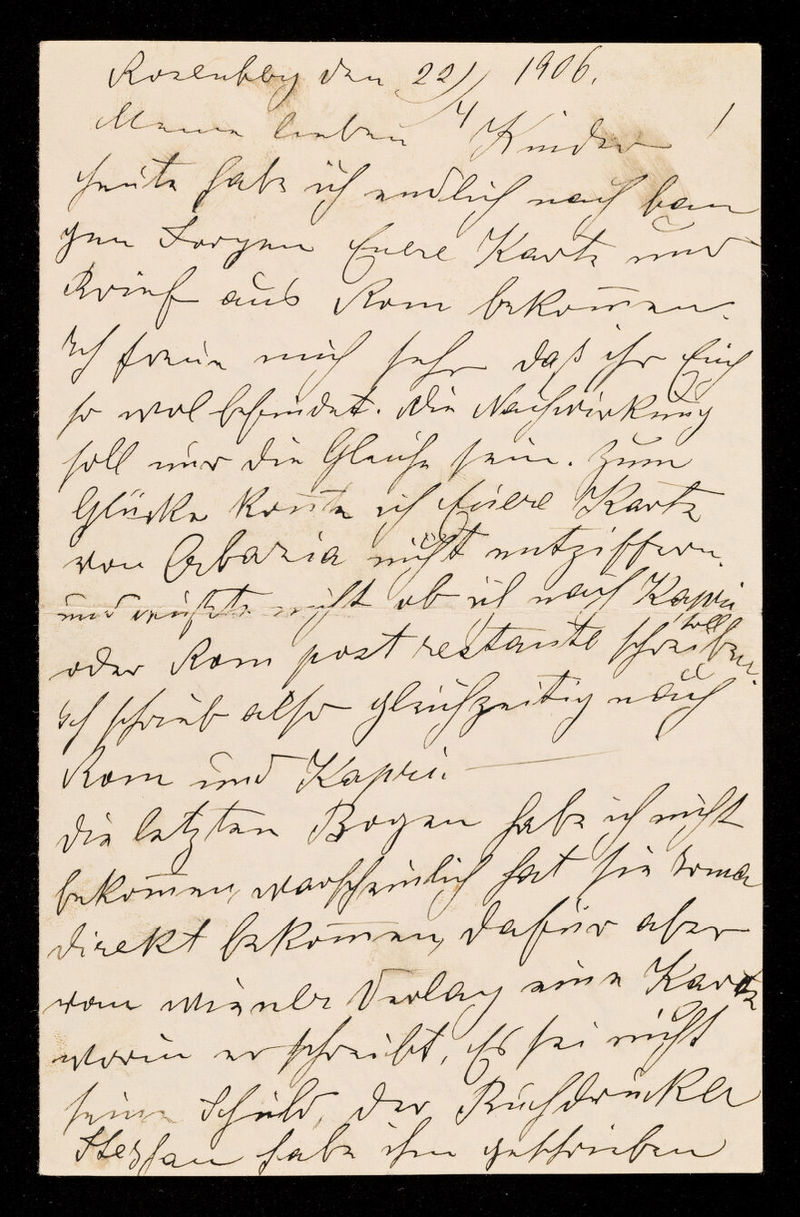 Rosenberg den 22/4 1906.
Meine lieben Kinder!
heute habe ich endlich nach ban
gen Sorgen Euere Karte und
Brief aus Rom bekom̅en.
Ich freue mich sehr daß ihr Euch
so wol befindet. Die Nachwirkung
soll nur die Gleiche sein. Zum
Glücke kon̅te ich Euere Karte
von Abazia nicht entziffern.
und wußte nicht ob ich nach Kapri
oder Rom post restante schreiben soll.
Ich schrieb also gleichzeitig nach
Rom und Kapri. —
Die letzten Bogen habe ich nicht
bekom̅en, warscheinlich hat sie Irma
direkt bekom̅en, dafür aber
vom wiener Verlag eine Karte
worin er schreibt, Es sei nicht
seine Schuld, der Buchdrucker
habe ihm geschrieben